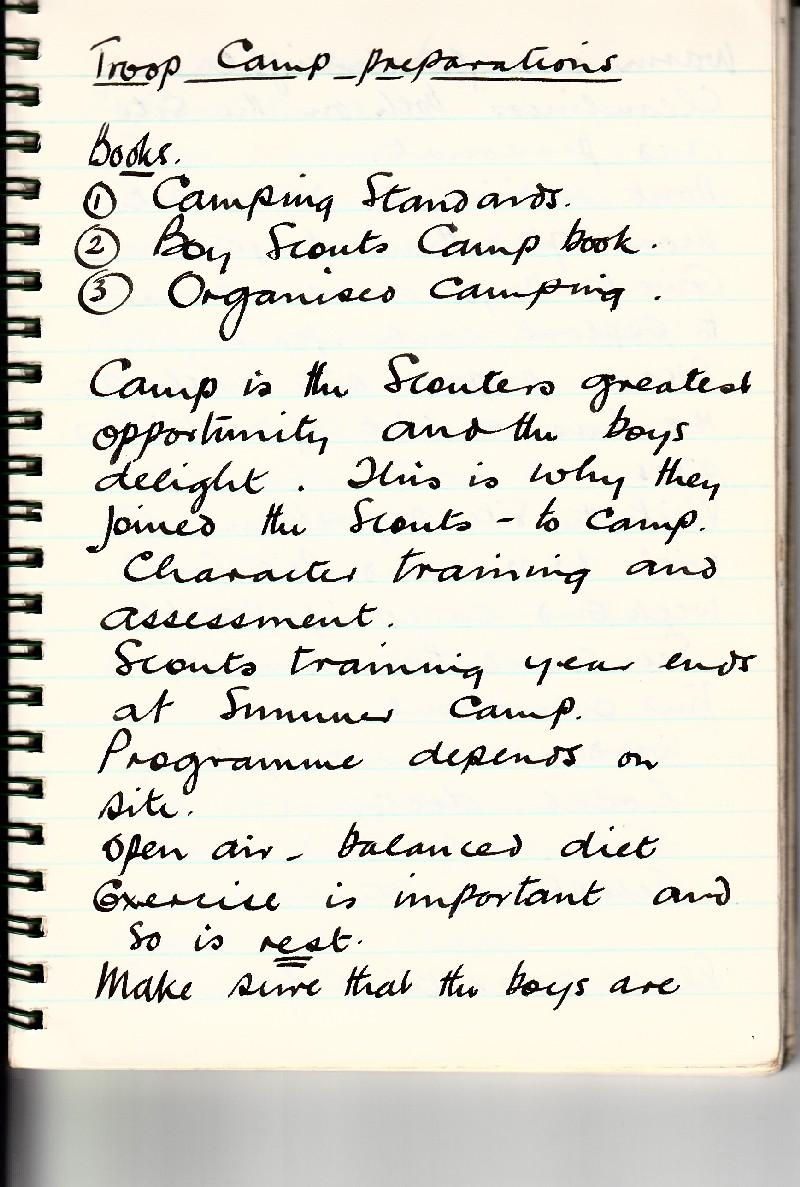 Troop Camp preparations
Books.
① Camping Standards.
② Boy Scouts Camp book.
③ Organised camping.
Camp is the Scouters greatest
opportunity and the boys
delight. This is why they
joined the Scouts - to camp.
Character training and
assessment.
Scouts training year ends
at Summer Camp.
Programme depends on
site.
Open air - balanced diet
Exercise is important and
so is rest.
Make sure that the boys are